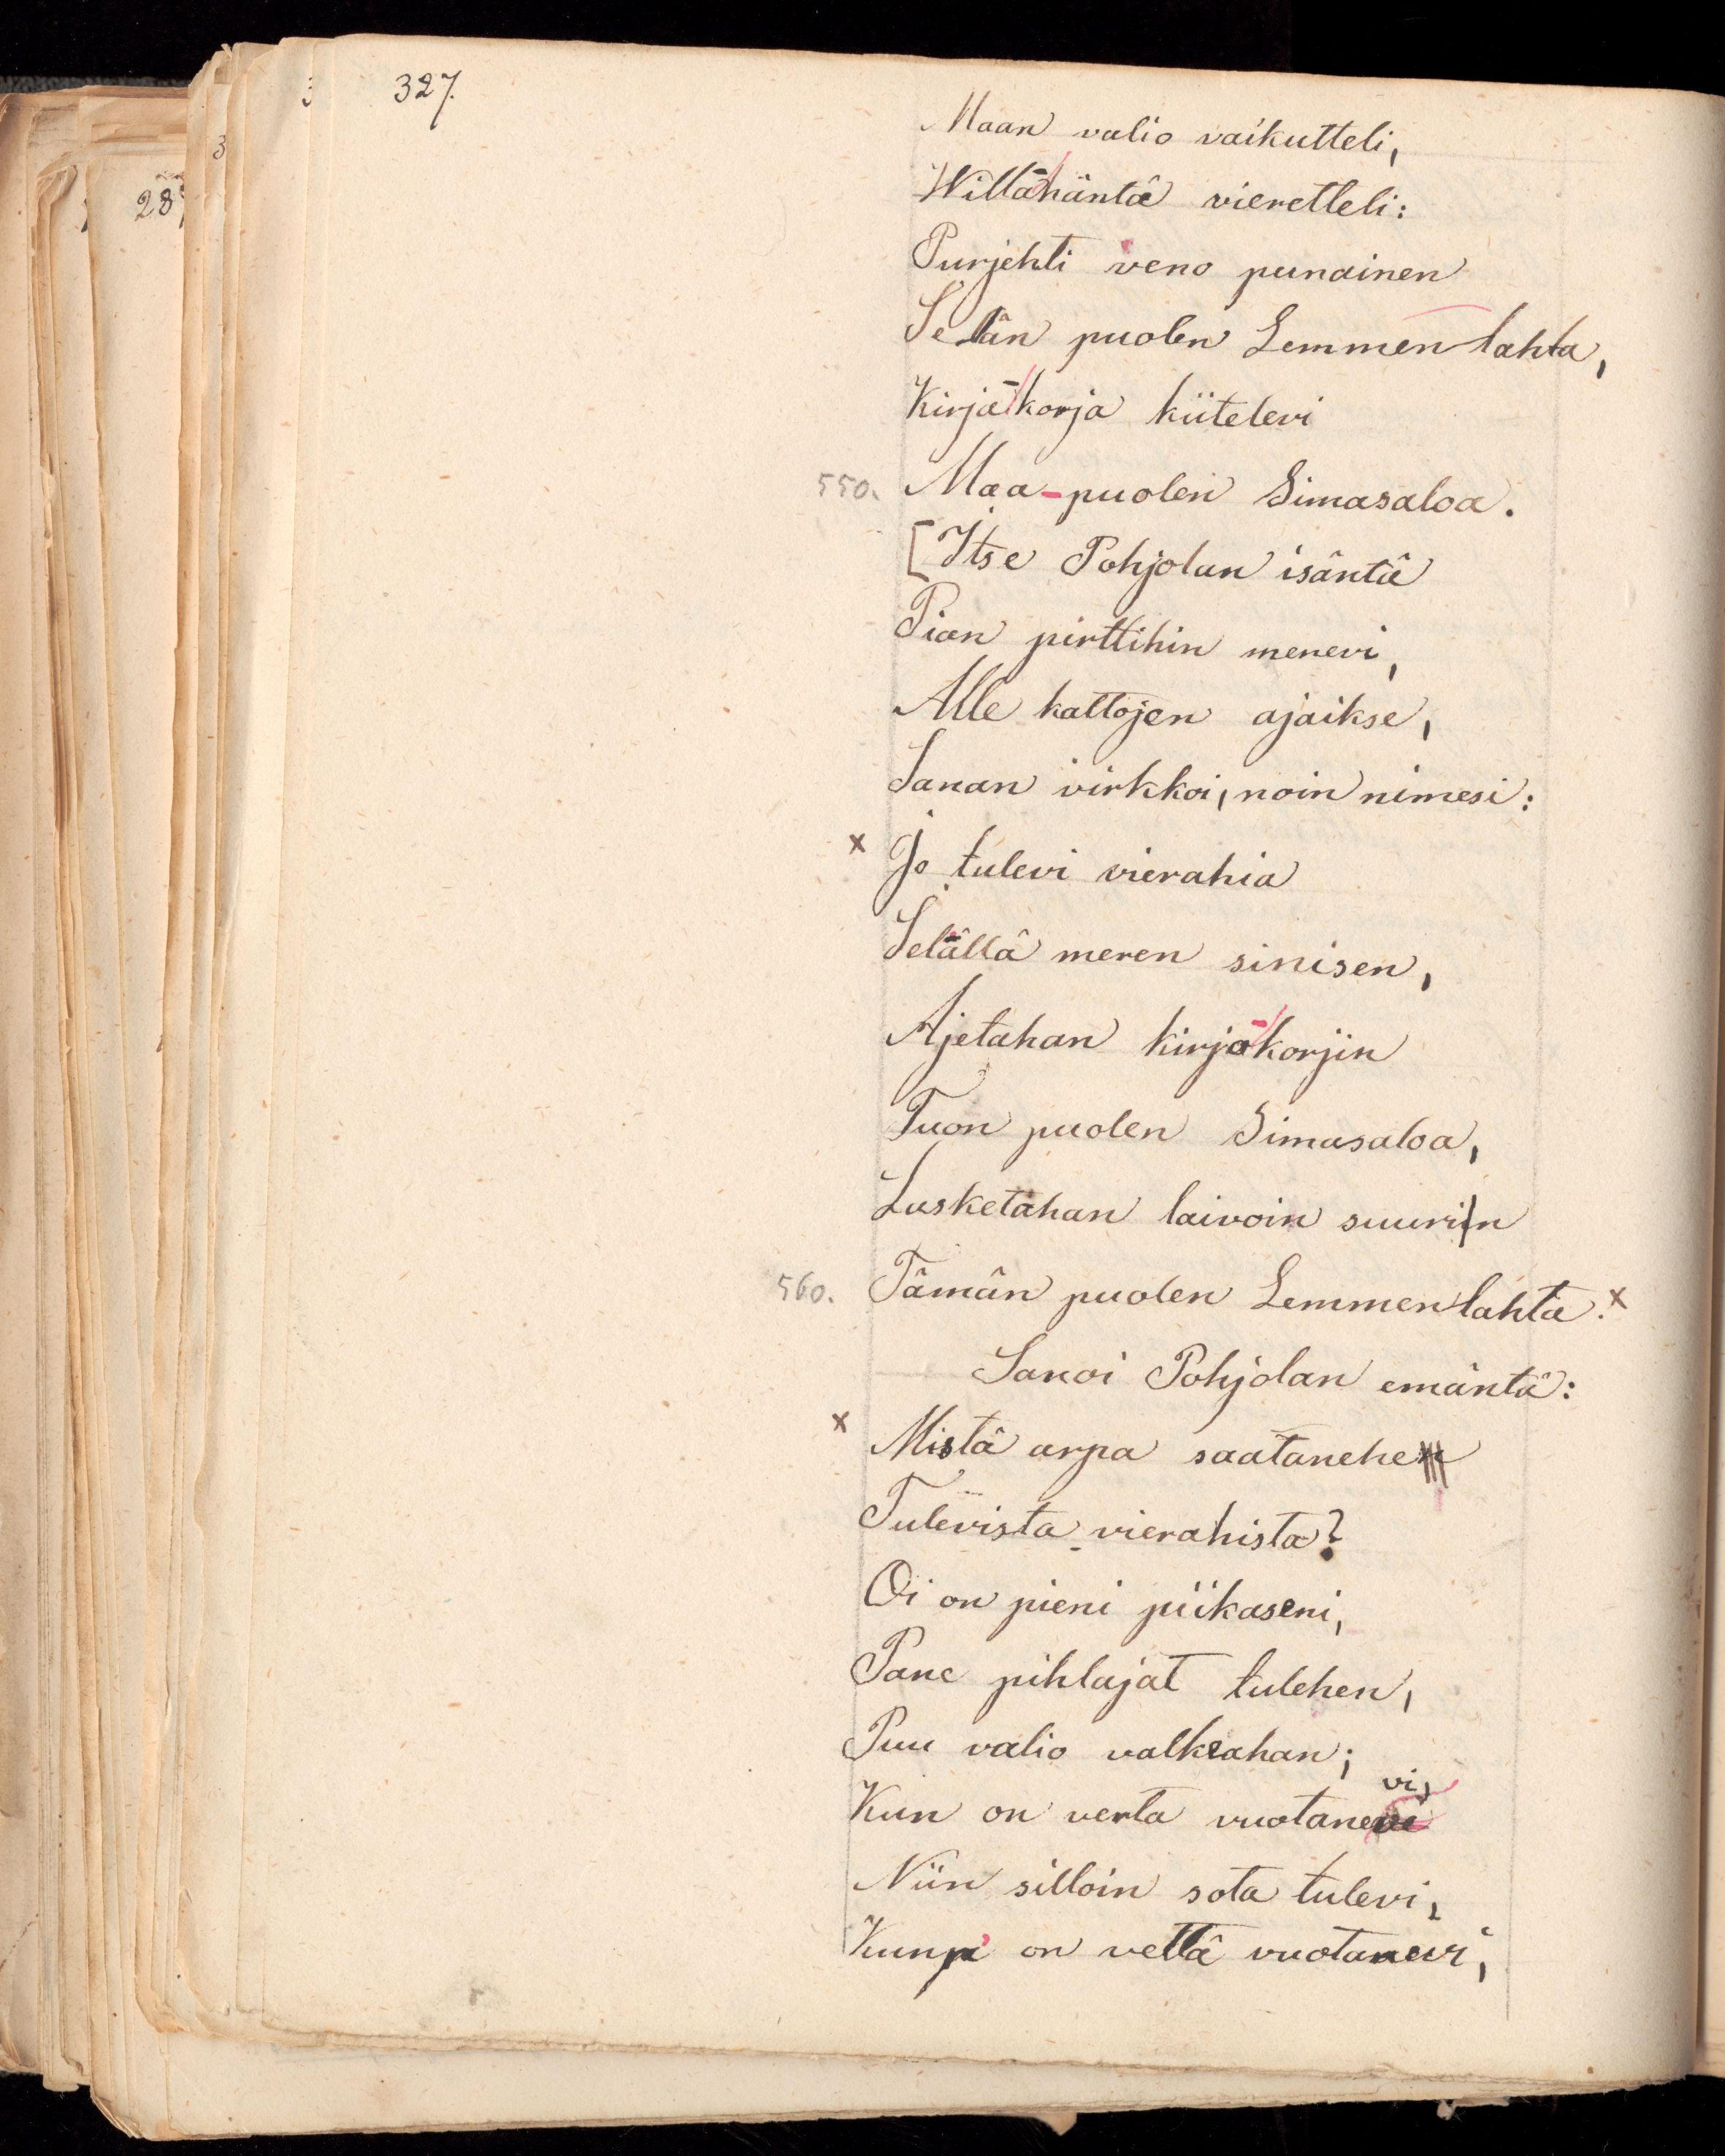 327.
287
Maan valio vaikutteli,
Willähäntä vieretteli:
Purjehti veno punainen
Selän puolen Lemmenlahta,
Kirja-korja kiitelevi
550. Maa-puolen Simasaloa.
[Itse Pohjolan isäntä
Pian pirttihin menevi,
Alle kattojen ajaikse,
Sanan virkkoi, noin nimesi:
x Jo tulevi vierahia
Selällä meren sinisen,
Ajetahan kirjakorjin
Tuon puolen Simasaloa,
Lasketahan laivoin suurin
560. Tämän puolen Lemmenlahta. x
Sanoi Pohjolan emäntä:
x Mistä arpa saatanehen
Tulevista vierahista?
Oi on pieni piikaseni,
Pane pihlajat tulehen,
Puu valio valkeahan;
vi,
Kun on verta vuotanevi
Niin silloin sota tulevi,
Kunpa on vettä vuotanevi,